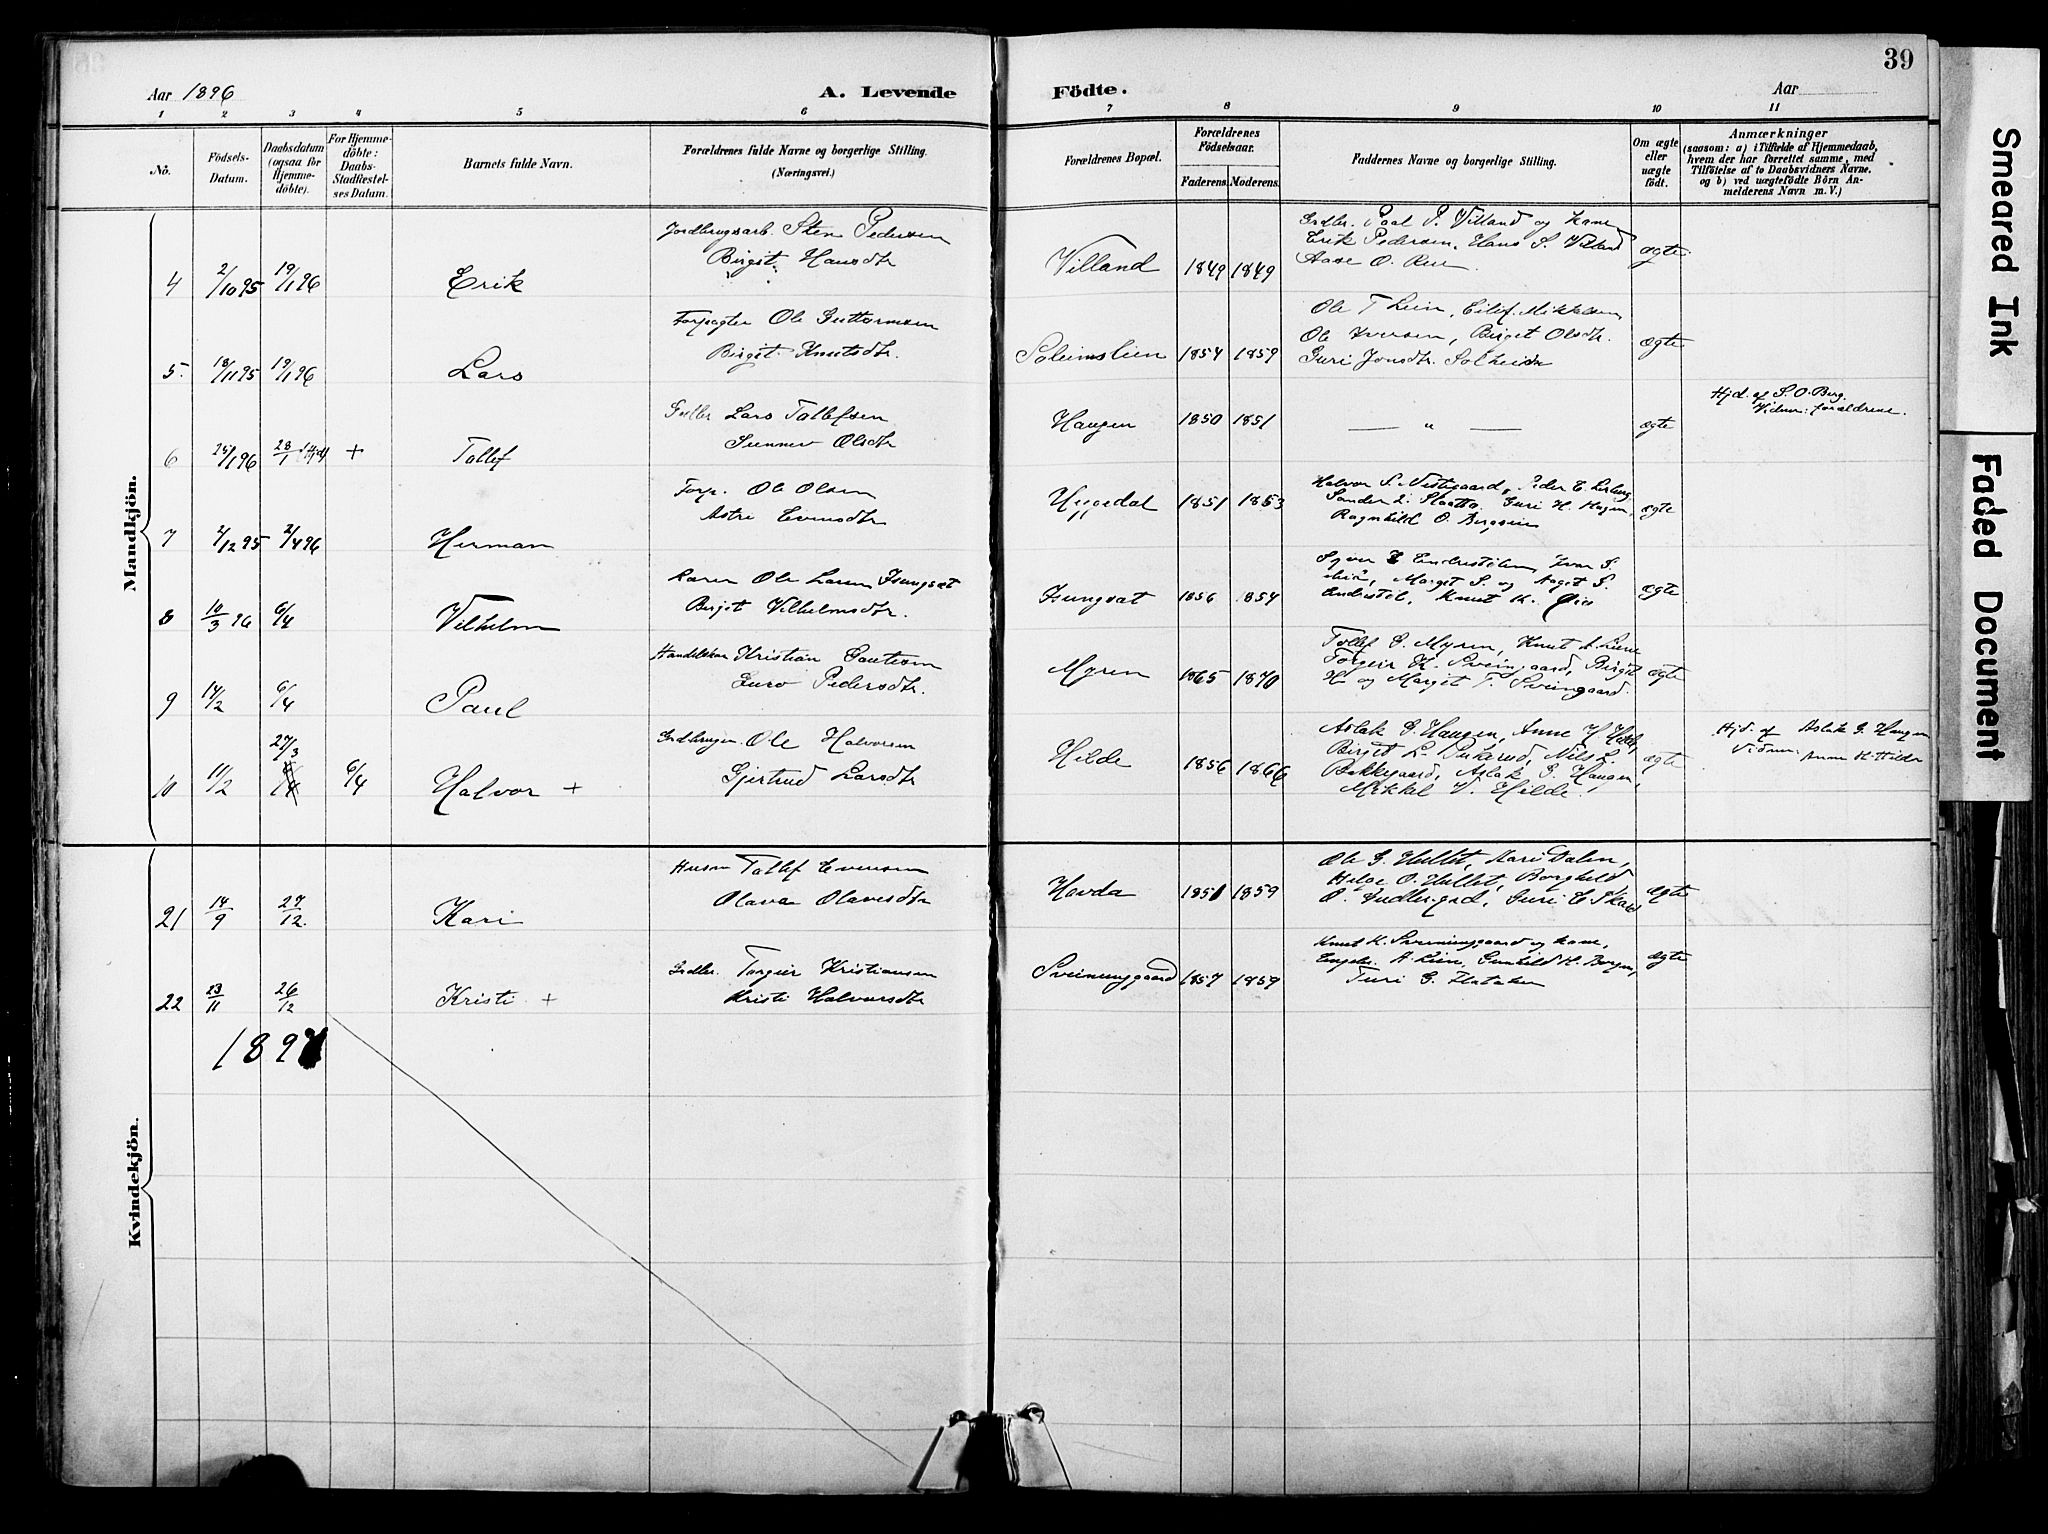 39
Aar 1896
A. Levende Födte.
Aar
1 2 3 4 5 6 7 8 9 10 11
No.
Födsels-Datum.
Daabsdatum (ogsaa for Hjemme-döbte).
For Hjemme-döbte: Daabs-Stadfæstel-ses Datum.
Barnets fulde Navn.
Forældrenes fulde Navne og borgerlige Stilling.
(Næringsvei.)
Forældrenes Bopæl.
Forældrenes Födselsaar.
Faderens. Moderens.
Faddernes Navne og borgerlige Stilling.
Om ægte eller uægte födt.
Anmærkninger
(saasom: a) i Tilfælde af Hjemmedaab, hvem der har forrettet samme, med Tilföielse af to Daabsvidners Navne. og b) ved uægtefödte Börn An-melderens Navn m. V.)
Mandkjön.
4 2/10 95 19/1 96 Erik
Jordbrugsarb. Sten Pedersen
Birgit Hansdtr
Villand 1849 1849
Grdbr. Paal P. Villand og kone
Erik Pedersen, Hans S. Villand
Aase O.
ægte.
5. 18/11 95 19/1 96 Lars
Forpagter Ole Guttormsen
Birgit Knutsdtr.
Soleimslien 1854 1859
Ole T Lien, Eilef Mikkelsen
Ole Iversen, Birgit Olsdtr.
Guri Jonsdtr. Solheim
ægte
6 25/1 96 28/1 + Tollef
Lars Tollefsen
Sunnev Olsdtr
Haugen 1850 1851
— " —
ægte
Hjd. af S. O. Berg.
Vidner: forældrene.
7 2/12 95 2/4 96 Herman
Forp. Ole Olsen
Astri Evensdtr
1851 1853
Halvor S. Vestegaard, Peder E.
Guri H. Hagen,
Ragnhild O.
ægte
8 10/3 96 6/4 Vilhelm
Ole Larsen
Birgit Vilhelmsdtr.
1856 1854
Marget S. og Aaget S.
Knut K.
ægte
9 14/2 6/4 Paul
Kristian
Guro Pedersdtr.
Myren 1865 1870
Tollef G. Myren, Knut A Liene
Torgeir K. Sveingaard, Birgit
K. og Marget T. Sveingaard.
ægte
10 11/2 27/3 6/4 Halvor +
Grdbruger Ole Halvorsen
Gjertrud Larsdtr
Hilde 1856 1866
Aslak G. Haugen, Anne K Hilde,
Birgit L. Nils L.
Bakkegaard, Aslak G. Haugen,
Mikkel V. Hilde.
ægte
Hjd. af Aslak G. Haugen
Vidner: Anne K. Hilde
Kvindekjön.
21 14/9 27/12. Kari
Husm Tollef Evensen
Olava Olavesdtr
Hovda 1851 1859
Ole G. Hullet, Kari Dalen,
Helge O. Hullet, Borghild
O. Guri E. Skare
ægte
22 23/11 26/12 Kristi +
Grdbr. Torgeir Kristiansen
Kristi Halvorsdtr
Sveinunggaard 1857 1859
Knut K. Sveinunggaard og kone,
A. Liene, Gunhild H. Bergen,
Turi G.
ægte
1897
Smeared Ink
Faded Document